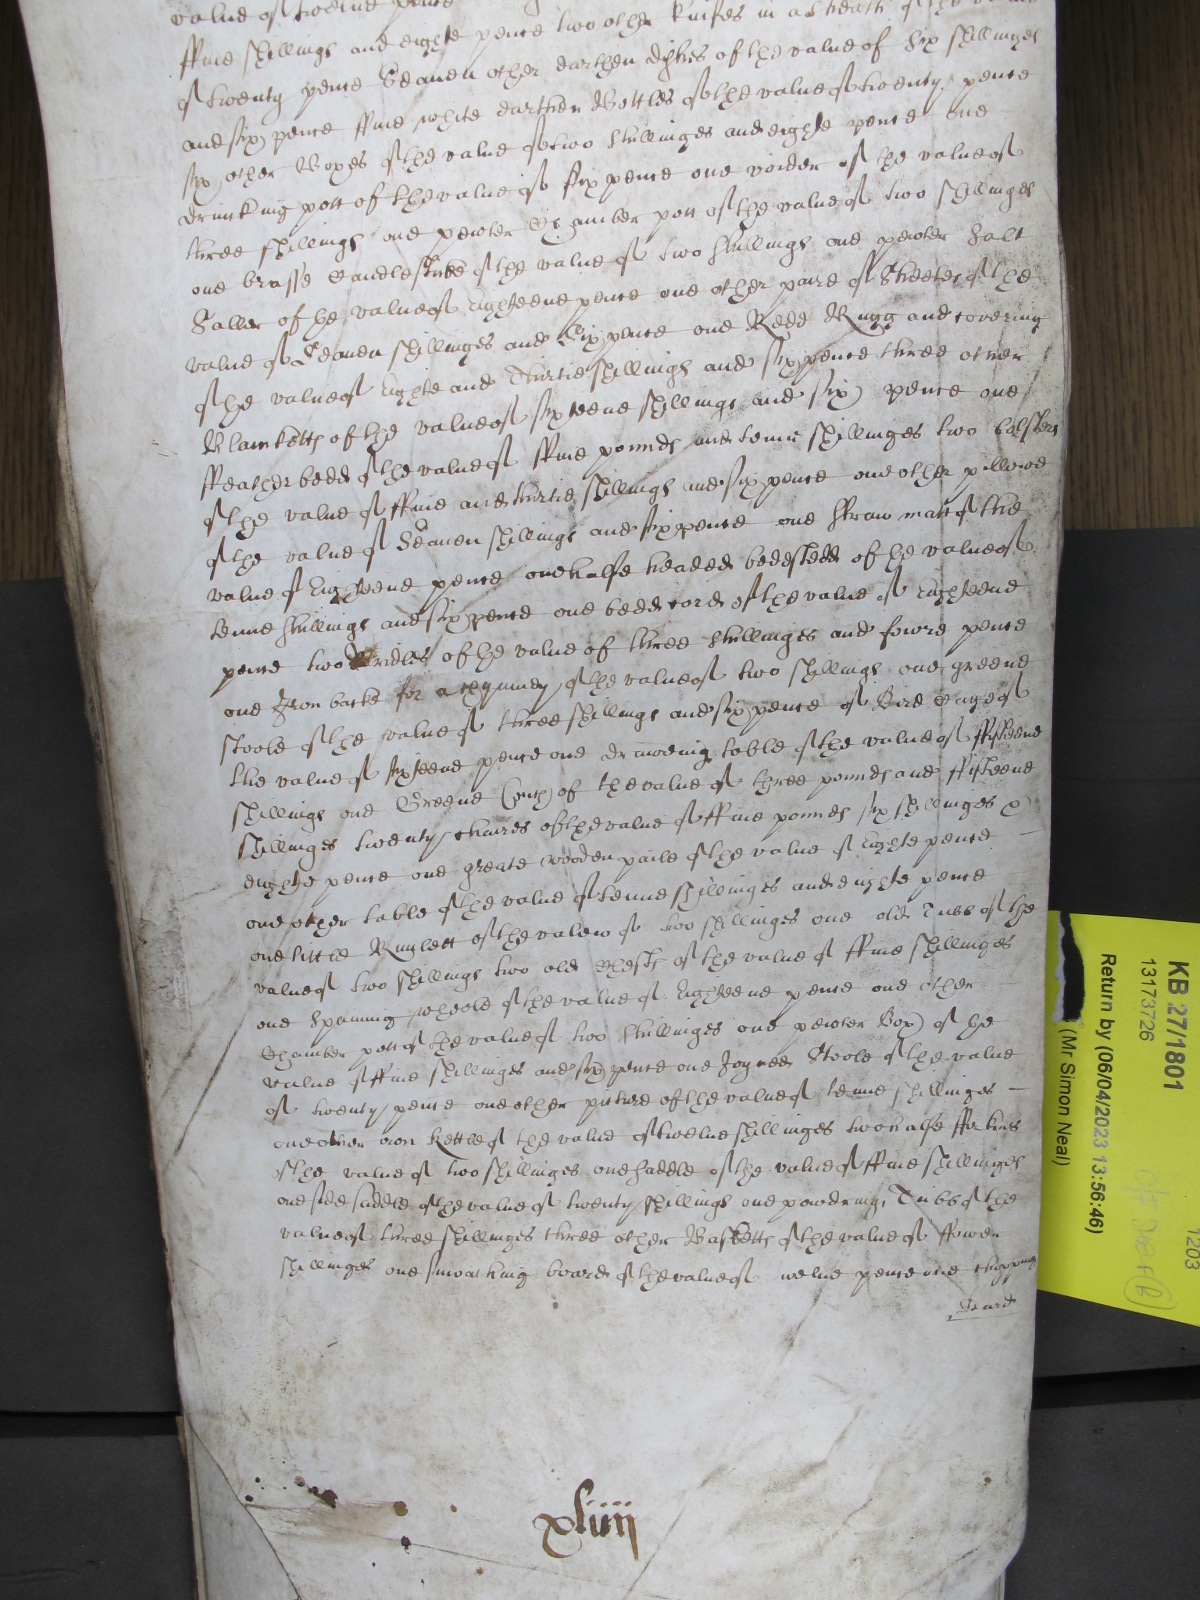 value of twelve pence
ffive shillings and eighte pence two other knifes in a sheath of the value
of twenty pence Seaven other earthen dishes of the value of six shillinges
and six pence ffive white earthen Bottles of the value of twenty pence
six other Boxes of the value of two shillinges and eighte pence one
drinking pott of the value of six pence one voider of the value of
three shillings one pewter Chamber pott of the value of two shillinges
one brasse Candlesticke of the value of two shillings one pewter Salt
Seller of the value of Eighteene pence one other paire of Sheetes of the
value of Seaven shillinges and Six pence one Redd Rugg and covering
of the value of Eighte and thirtie shillings and six pence three other
Blanketts of the value of sixteene shillings and six pence one
ffeather bedd of the value of ffive pounds and tenne shillinges two bolsters
of the value of ffive and thirtie shillings and six pence one other pillowe
of the value of Seaven shillings and six pence one straw matt of the
value of Eighteene pence one halfe headed bedstedd of the value of
tenne shillings and six pence one bedd cord of the value of Eighteene
pence two Bridles of the value of three shillinges and fowre pence
one Iron backe for a chymney of the value of two shillings one greene
stoole of the value of three shillings and six pence of Bird Cage of
the value of sixteene pence one drawing table of the value of ffifteene
shillings one Greene Couch of the value of three pounds and ffifteene
shillinges twenty chaires of the value of ffive pounds six shillinges &
eighte pence one greate wooden paile of the value of Eighte pence
one other table of the value of tenne shillinges and eighte pence
one little Runlett of the valew of two shillinges one old Tubb of the
value of two shillings two old Chests of the value of ffive shillinges
one spinning wheele of the value of Eighteene pence one other
Chamber pott of the value of two shillinges one pewter Box of the
value of ffive shillinges and six pence one Joyned Stoole of the value
of twenty pence one other picture of the value of tenne shillinges
one other iron kettle of the value of twelve shillinges two halfe ffirkins
of the value of two shillinges one saddle of the value of ffive shillings
one side saddle of the value of twenty shillings one powdring Tubb of the
value of three shillinges three other Basketts of the value of ffower
shillinges one smoathing board of the value of twelve pence one chopping
board
xliiij
KB 27/1801
13173726
Return by (06/04/2023 13:56:46)
(Mr Simon Neal)
1203